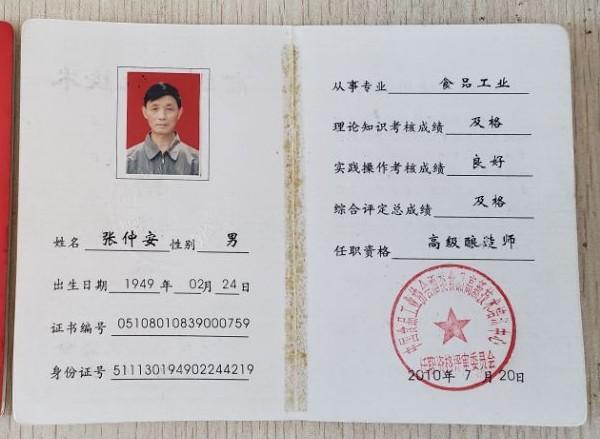 姓名 张仲安 性别 男
出生日期 1949 年 02月 24日
证书编号 05108010839000759
身份证号 511130194902244219
从事专业 食品工业
理论知识考核成绩 及格
实践操作考核成绩 良好
综合评定总成绩 及格
任职资格 高级酿造师
任职资格评审委员会
2010年 7 月 20日